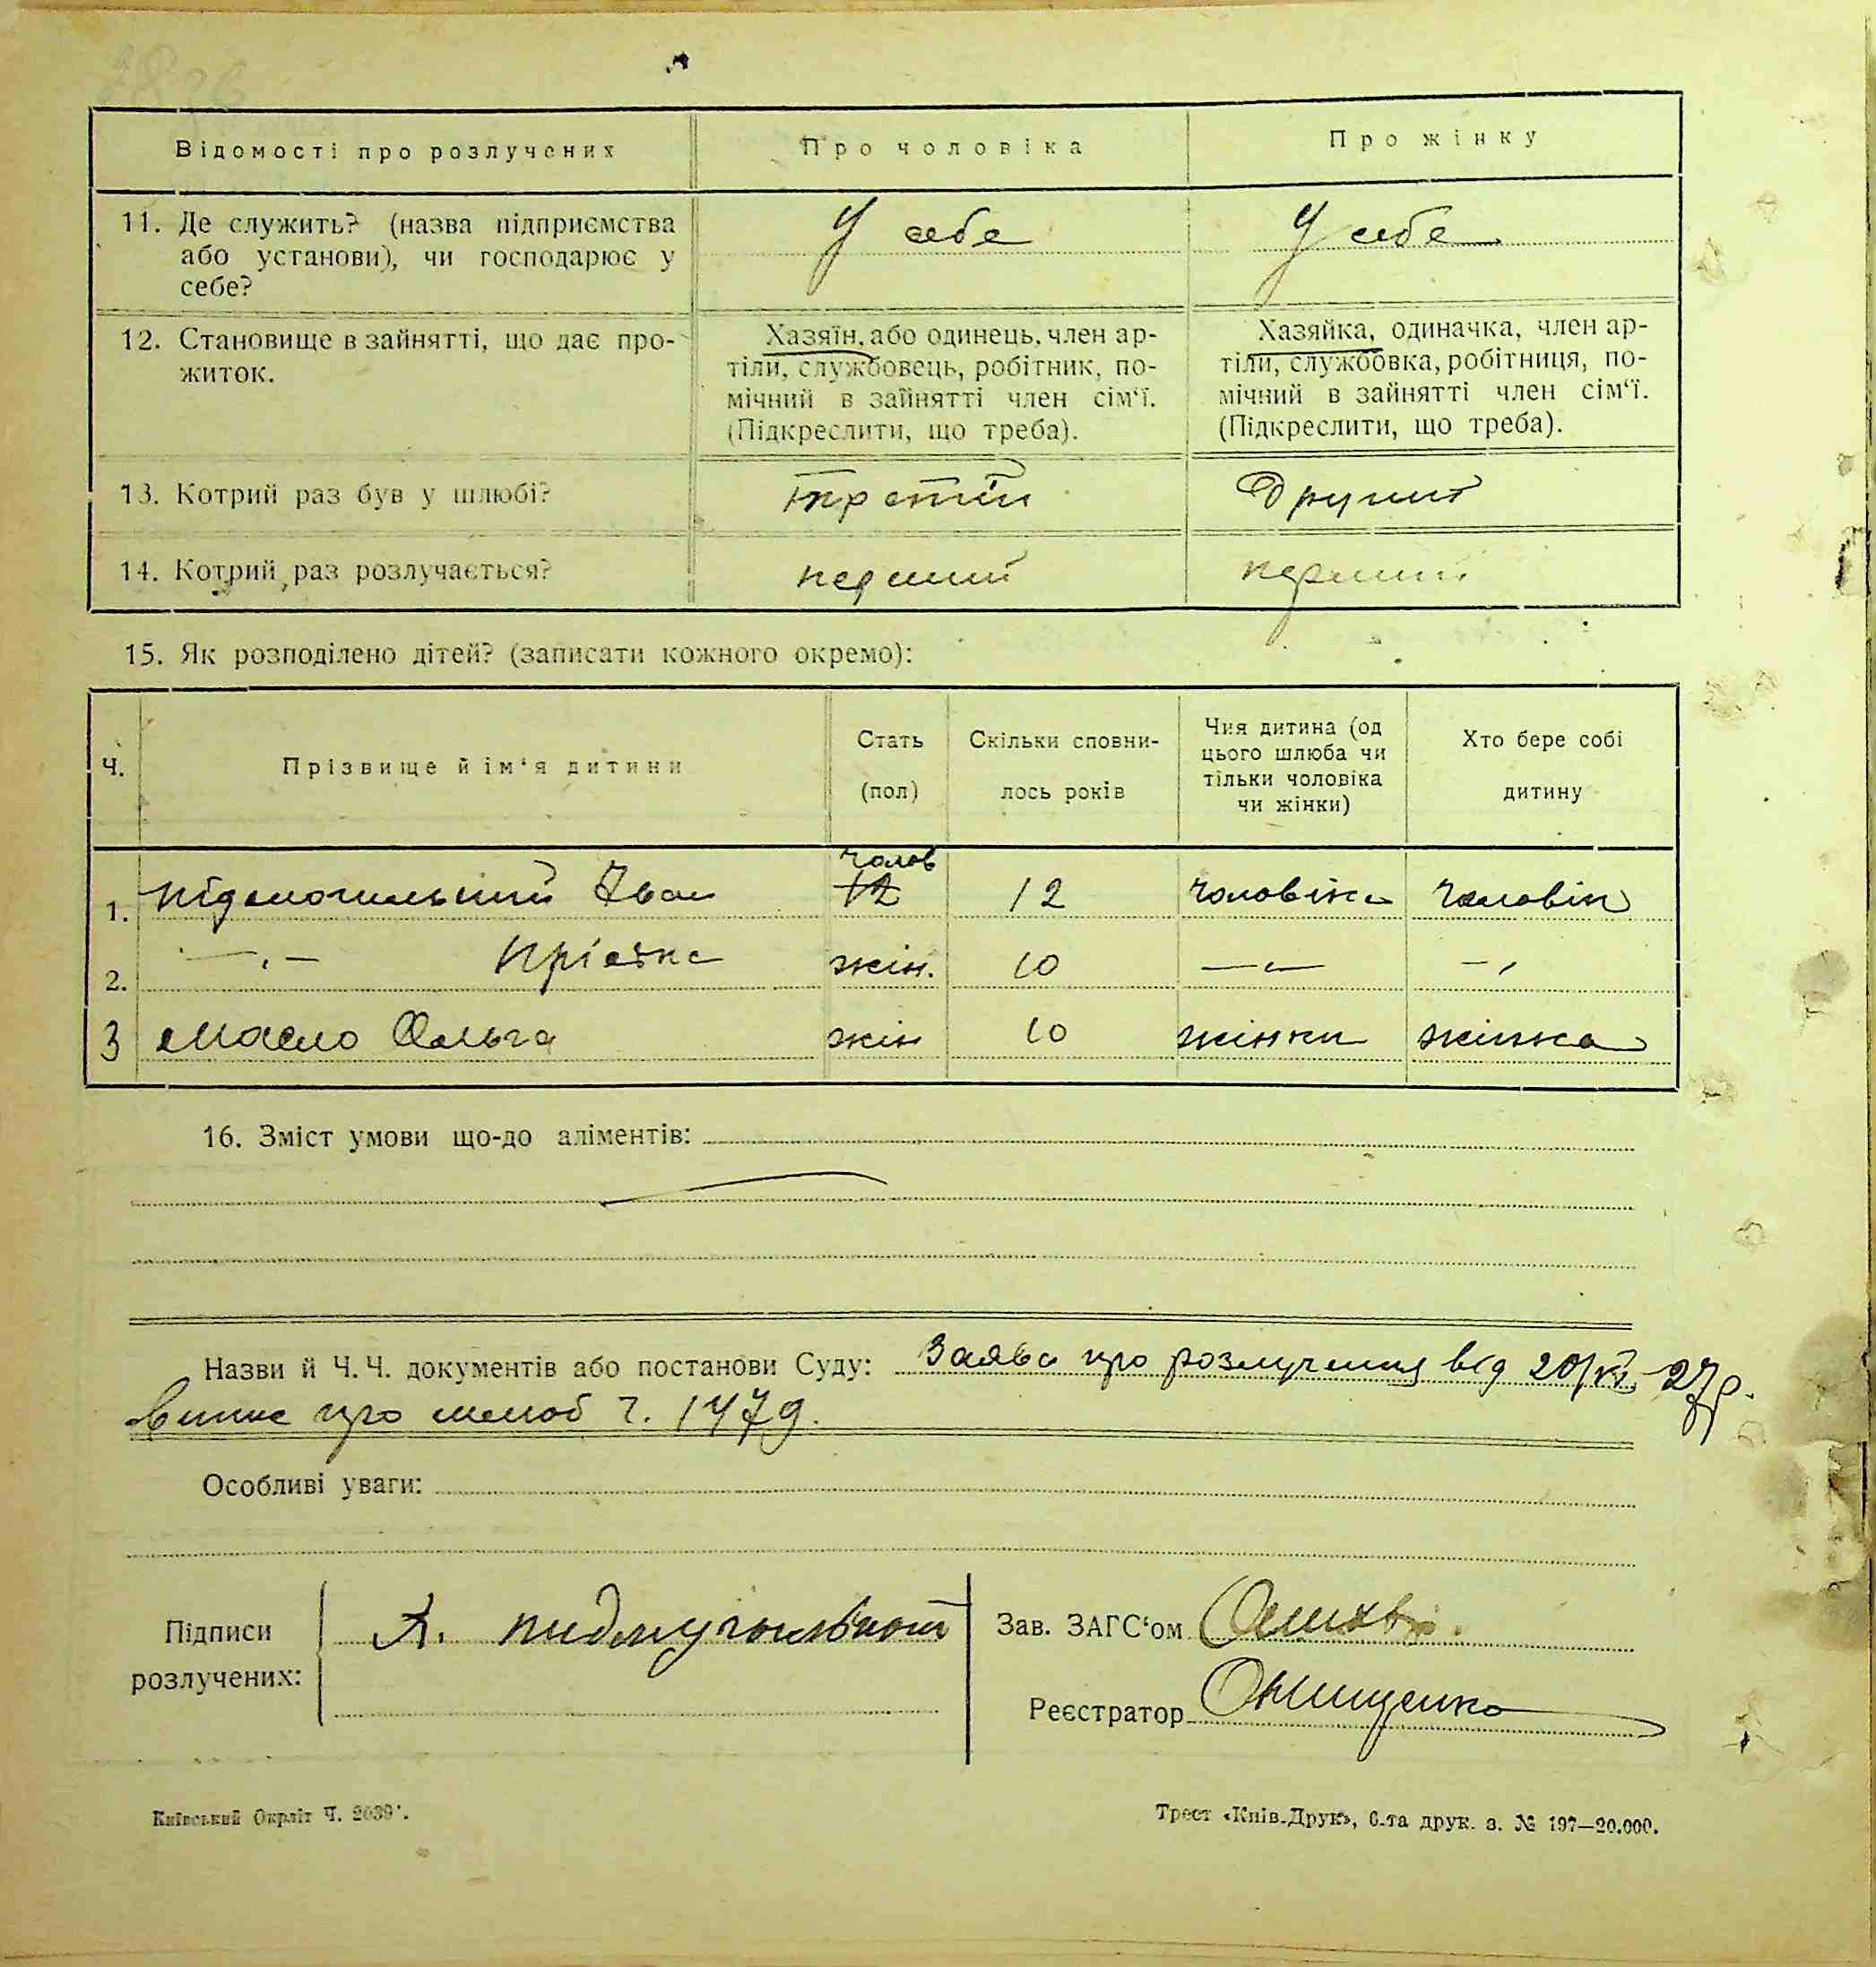 Відомості про розлучених
Про чоловіка
Про жінку
11. Де служить? (назва підприємства
або установи), чи господарює у
себе?
У себе
У себе
12. Становище в зайнятті, що дає про-
житок.
Хазяїн, або одинець, член ар-
тіли, службовець, робітник, по-
мічний в зайнятті член сім‘ї.
(Підкреслити, що треба).
Хазяйка, одиначка, член ар-
тіли, службовка, робітниця, по-
мічний в зайнятті член сім‘ї.
(Підкреслити, що треба).
13. Котрий раз був у шлюбі?
третій
Другий
14. Котрий раз розлучається?
перший
перший
15. Як розподілено дітей? (записати кожного окремо):
Ч.
Прізвище й ім‘я дитини
Стать
(пол)
Скільки сповни-
лось років
Чия дитина (од
цього шлюба чи
тільки чоловіка
чи жінки)
Хто бере собі
дитину
1. Підмогильний Іван
чолов
12
12
чоловіка
чоловік
2. —„— жін. 10 —„— —„
3 Масло Ольга жін 10 жінки жінка
16. Зміст умови що-до аліментів:
Назви й Ч. Ч. документів або постанови Суду: Заява про розлучення від 20/VI 27р.
Випис про шлюб ч. 1479.
Особливі уваги:
Підписи
розлучених:
А.
Зав. ЗАГС‘ом
Реєстратор Онищенко
Київський Окрліт Ч. 2039'.
Трест «Київ-Друк», 6-та друк. з. № 197—20.000.